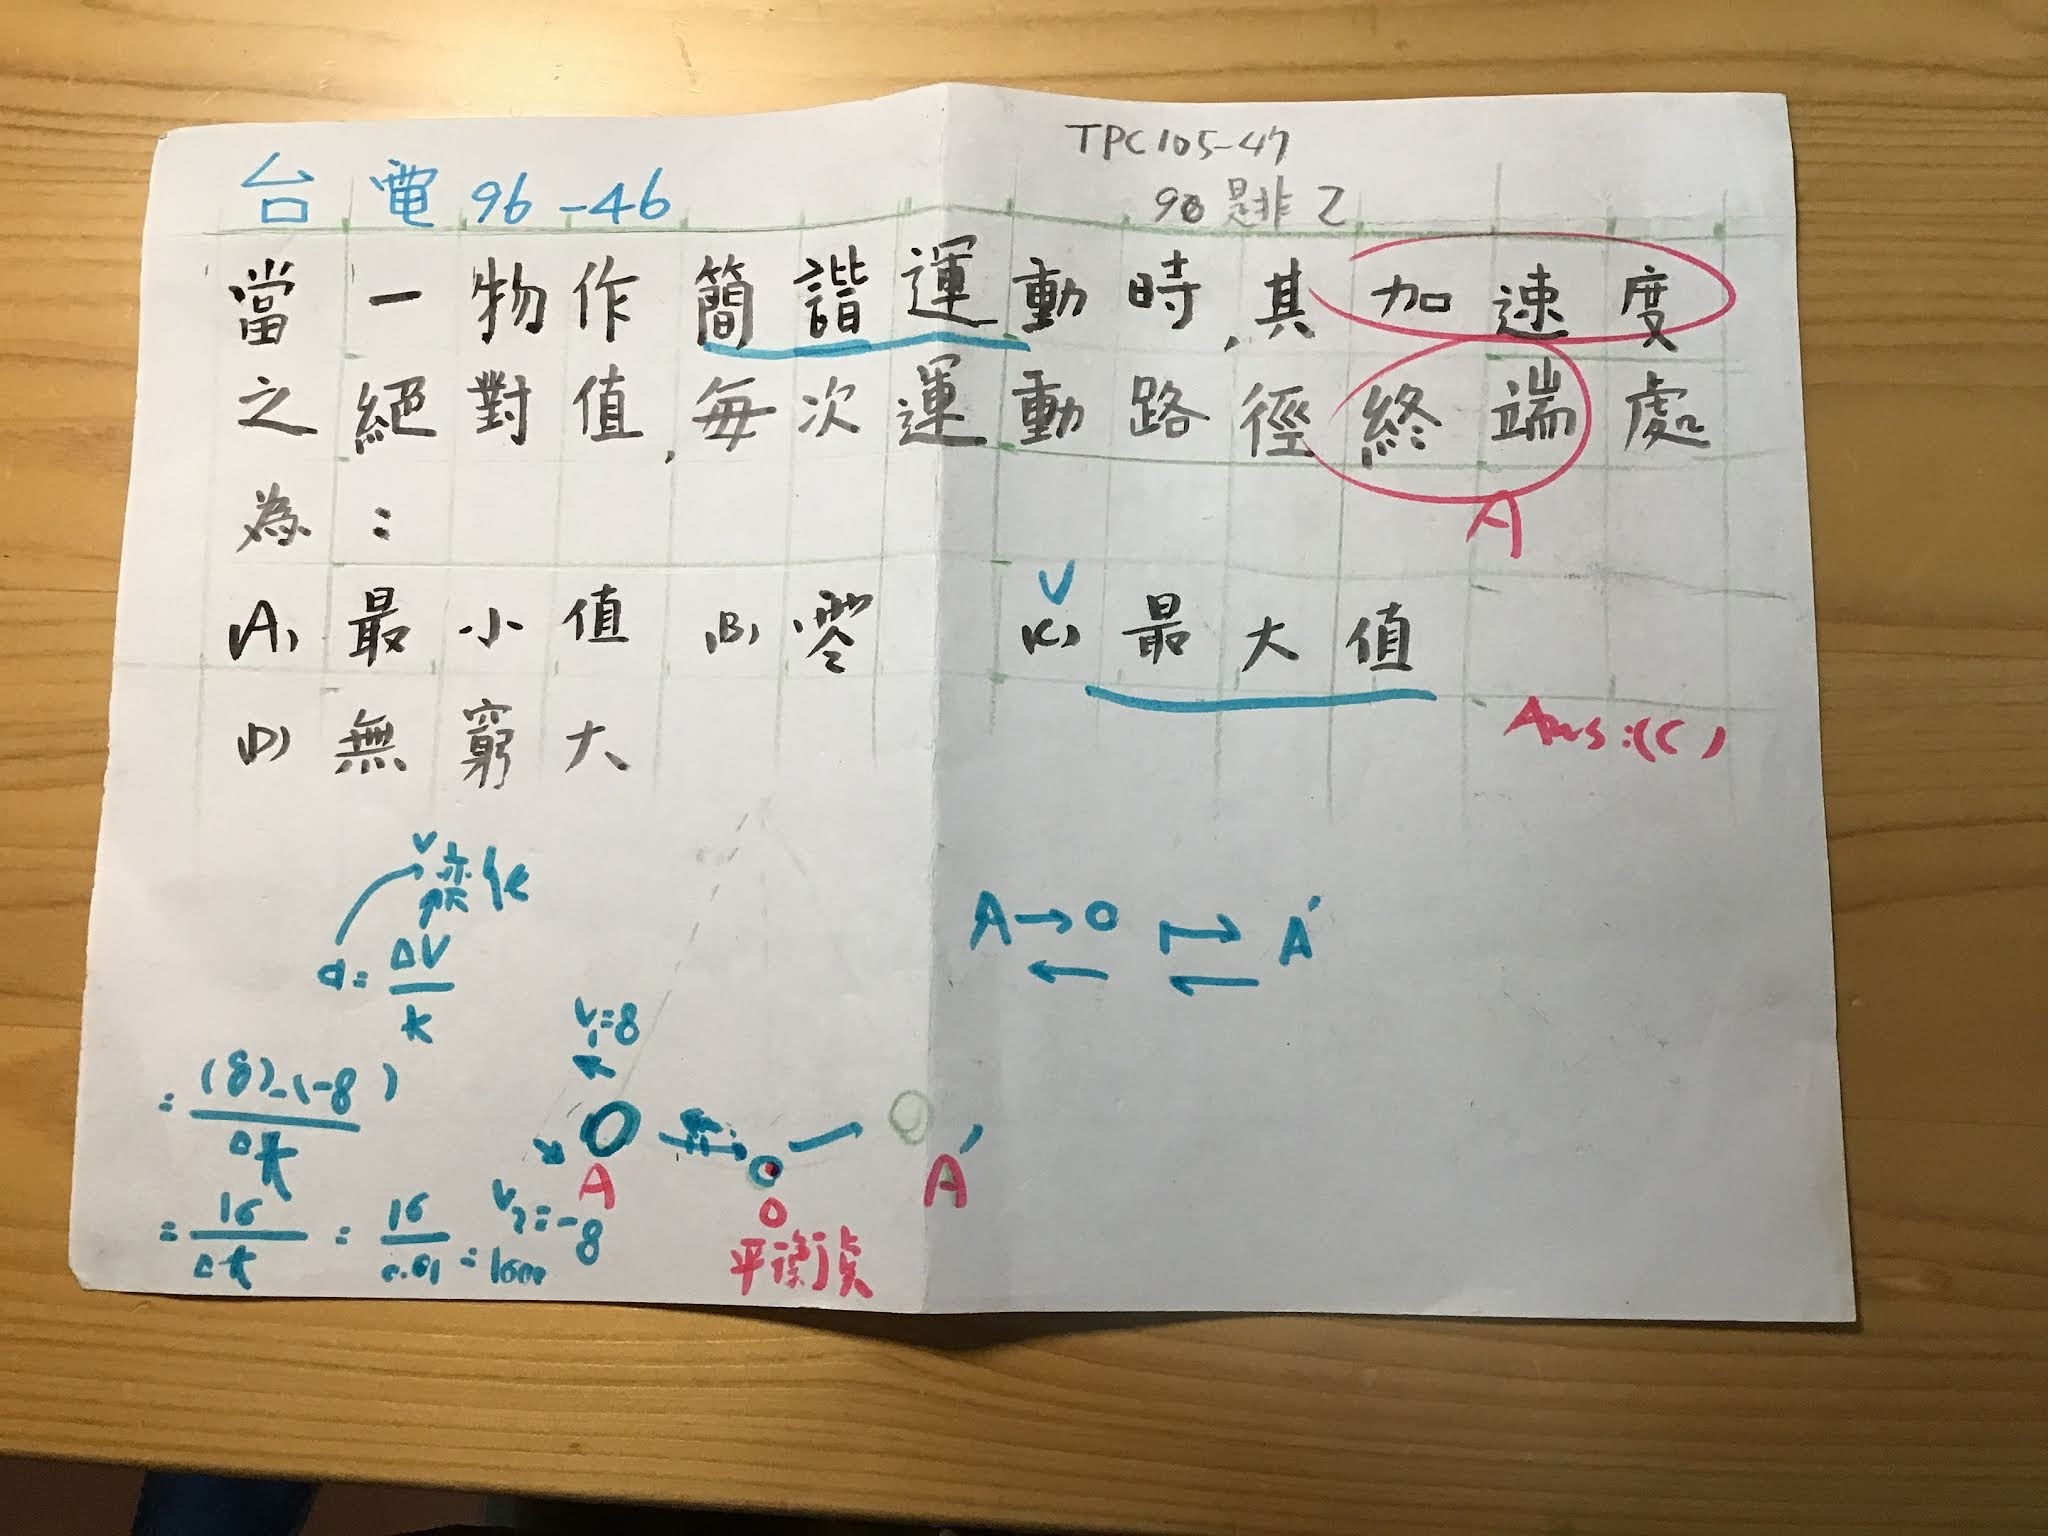 TPC105-47
台電96-46
98是非2
當一物作簡諧運動時,其加速度
之絕對值,每次運動路徑終端處
為:
A
V
(A)最小值 (B)零 (C)最大值
(D)無窮大
Ans:(C)
V
變化
a=ΔV/t
A→O → A'
← ←
V₁=8
=(8)-(-8)/Δt
A
A'
=16/Δt=16/0.01=1600
V₂=-8
O
平衡点